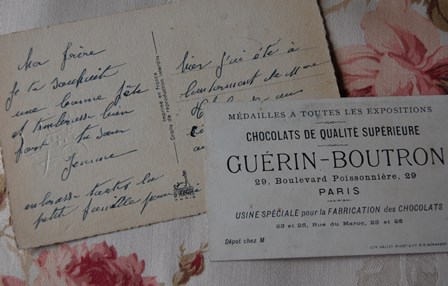 Mon frère
Je te souhait
une bonne fête
et embrasse bien
fort ta sœur
Jeanne
embrasse toutes la
petit famille pour
Imprimé en France
Droits de reproduction
hier j'ai été à
l'enterrement de Mme
MÉDAILLES A TOUTES LES EXPOSITIONS
CHOCOLATS DE QUALITÉ SUPÉRIEURE
GUÉRIN-BOUTRON
29, Boulevard Poissonnière, 29
PARIS
USINE SPÉCIALE pour la FABRICATION des CHOCOLATS
23 et 25, Rue du Maroc, 23 et 25
Dépot chez M